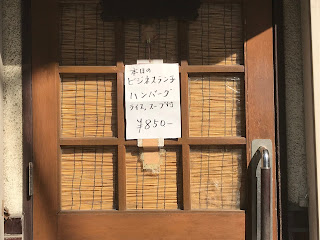 本日の
ビジネスランチ
ハンバーグ
ライス、スープ付
¥850-